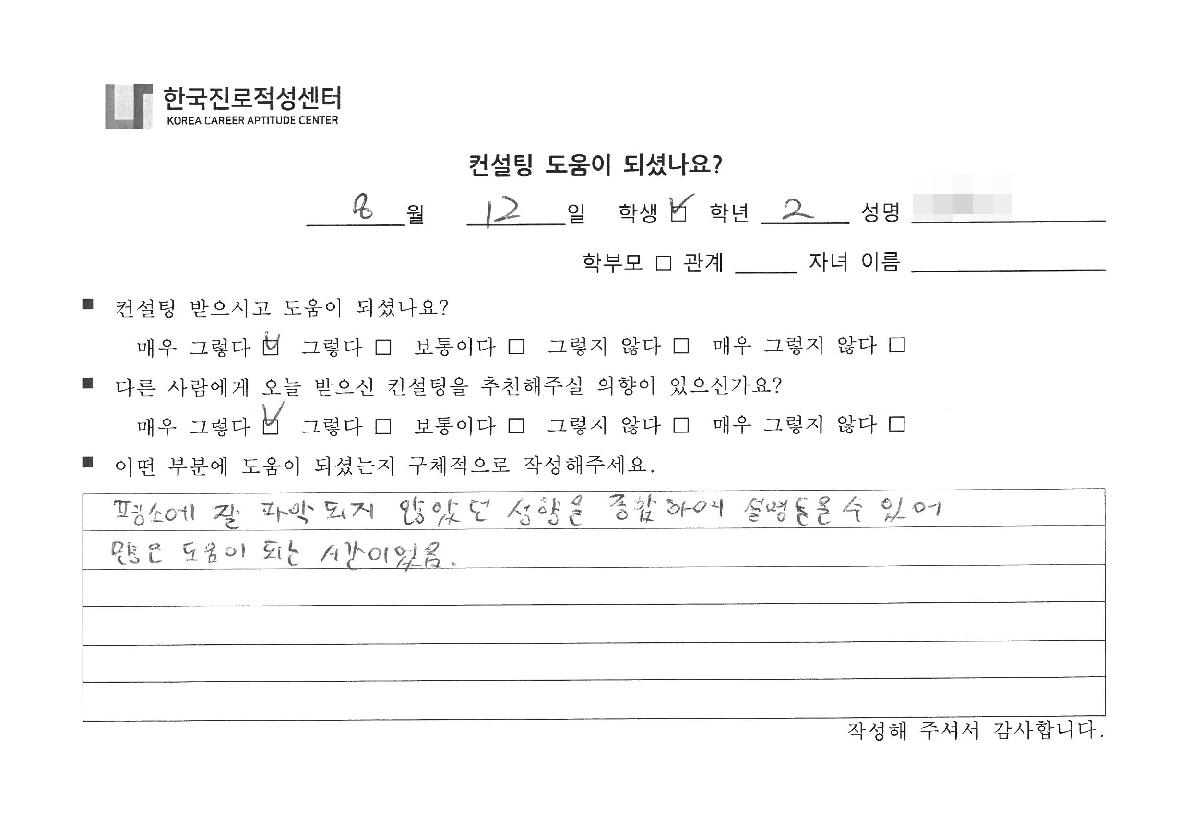 한국진로적성센터
KOREA CAREER APTITUDE CENTER
컨설팅 도움이 되셨나요?
8 월 12 일 학생 ☑ 학년 2 성명
학부모 □ 관계 자녀 이름
■ 컨설팅 받으시고 도움이 되셨나요?
매우 그렇다 ☑ 그렇다 □ 보통이다 □ 그렇지 않다 □ 매우 그렇지 않다 □
■ 다른 사람에게 오늘 받으신 컨설팅을 추천해주실 의향이 있으신가요?
매우 그렇다 ☑ 그렇다 □ 보통이다 □ 그렇지 않다 □ 매우 그렇지 않다 □
■ 어떤 부분에 도움이 되셨는지 구체적으로 작성해주세요.
평소에 잘 파악 되지 않았던 성향을 종합하여 설명들을 수 있어
많은 도움이 되는 시간이었음.
작성해 주셔서 감사합니다.